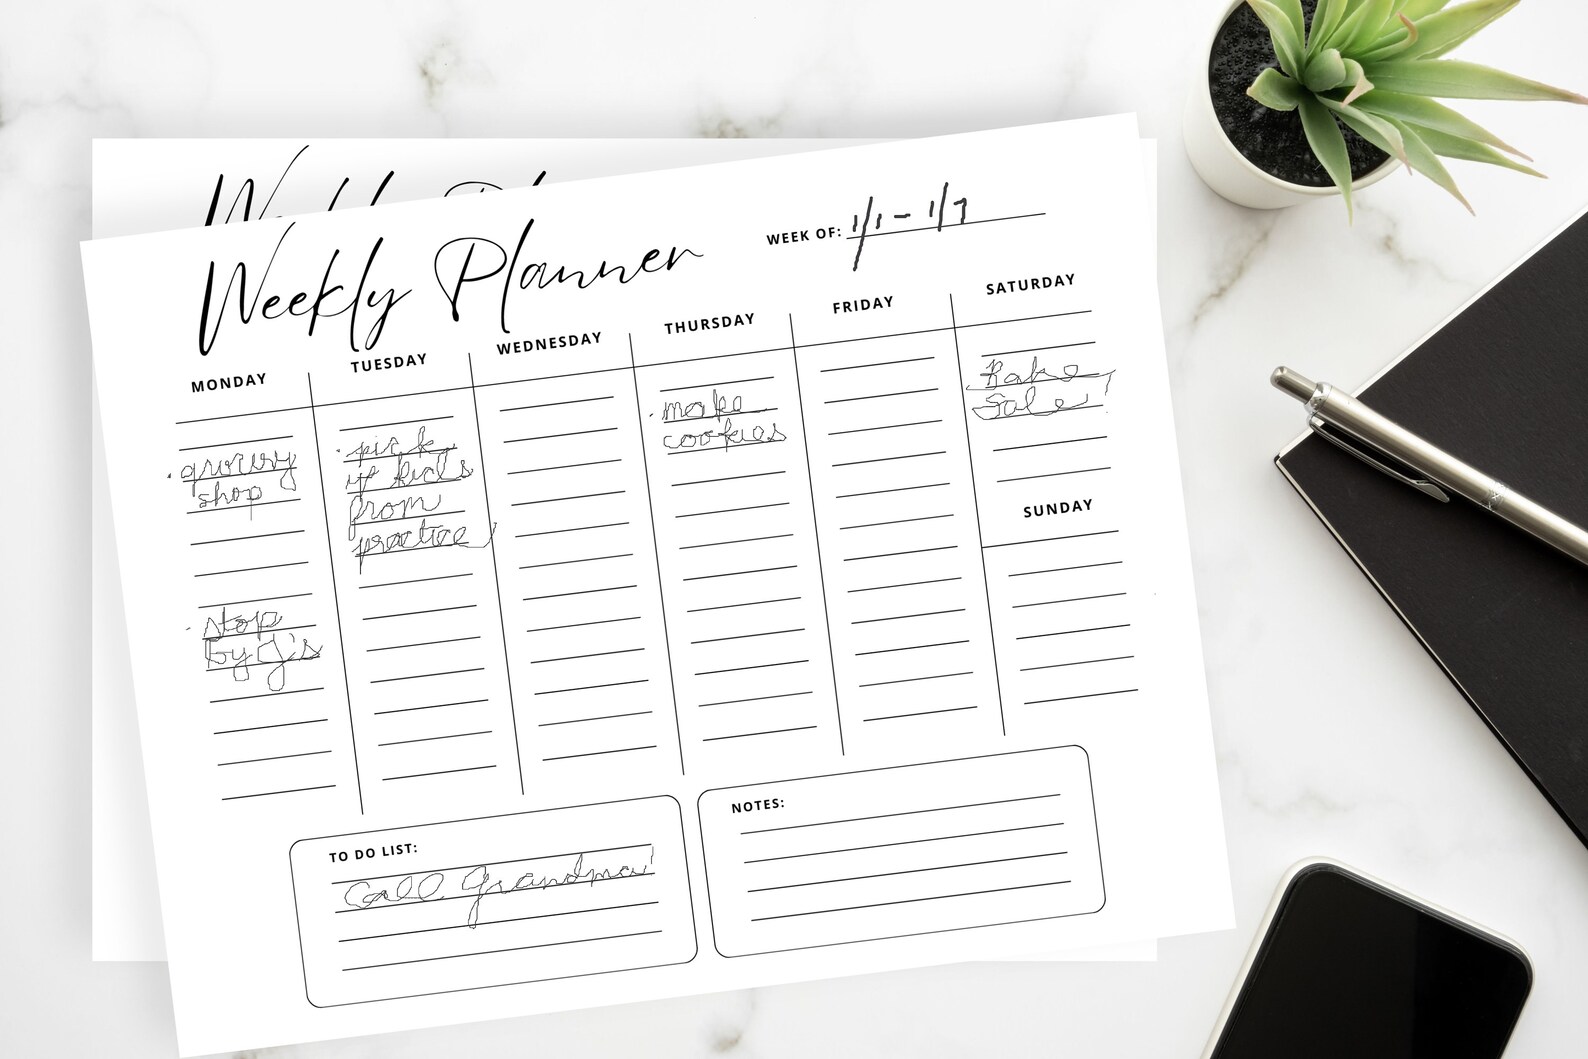 Weekly Planner
Weekly Planner
WEEK OF: 1/1 - 1/7
MONDAY
· grocery
shop
· stop
by J's
TUESDAY
· pick
up kids
from
practice!
WEDNESDAY
THURSDAY
· make
cookies
FRIDAY
SATURDAY
· Bake
Sale!
SUNDAY
TO DO LIST:
Call Grandma!
NOTES: